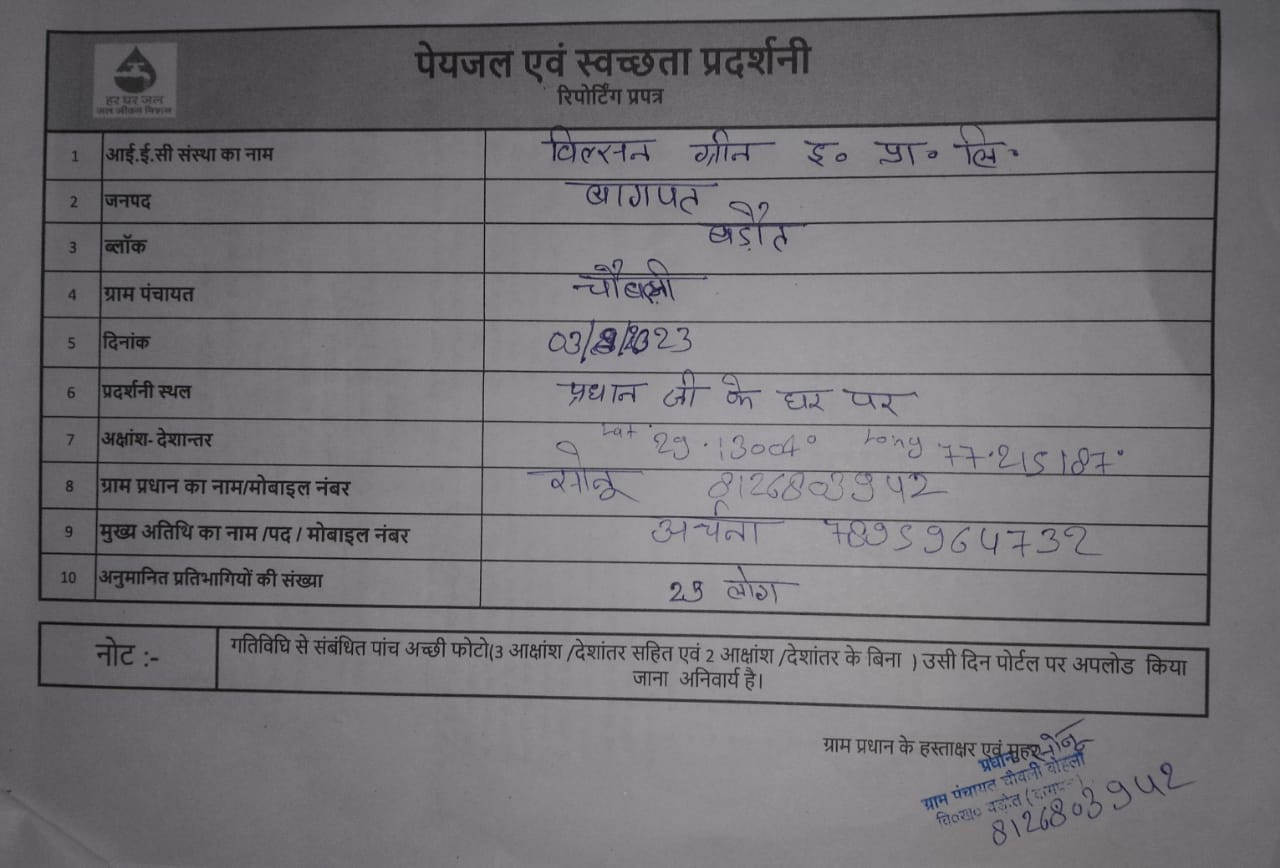 पेयजल एवं स्वच्छता प्रदर्शनी
हर घर जल
जल जीवन मिशन
रिपोर्टिंग प्रपत्र
1 आई.ई.सी संस्था का नाम विल्सन ग्रीन इ० प्रा० लि.
2 जनपद बागपत
3 ब्लॉक बड़ौत
4 ग्राम पंचायत
5 दिनांक
6 प्रदर्शनी स्थल प्रधान जी के घर पर
7 अक्षांश- देशान्तर Lat 29.13004° Long 77.215187°
8 ग्राम प्रधान का नाम/मोबाइल नंबर सोनू 8126803942
9 मुख्य अतिथि का नाम /पद / मोबाइल नंबर अर्चना 7895964732
10 अनुमानित प्रतिभागियों की संख्या लोग
नोट :- गतिविधि से संबंधित पांच अच्छी फोटो(3 आक्षांश /देशांतर सहित एवं 2 आक्षांश /देशांतर के बिना ) उसी दिन पोर्टल पर अपलोड किया
जाना अनिवार्य है।
ग्राम प्रधान के हस्ताक्षर एवं मुहर सोनू
प्रधान
ग्राम पंचायत चौबली
वि०ख० बड़ौत
8126803942